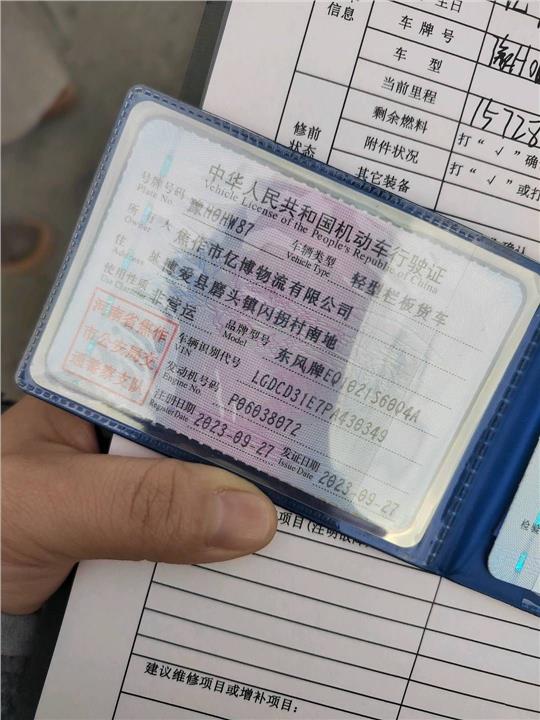 信息
生日
车牌号
车 型
当前里程
15728
修前
状态
剩余燃料
打“√”确
附件状况
打“√”或打
其它装备
确认
中华人民共和国机动车行驶证
Vehicle License of the People's Republic of China
号牌号码 豫H0HW87 车辆类型 轻型栏板货车
Plate No. Vehicle Type
所有人 焦作市亿博物流有限公司
Owner
住 址 博爱县磨头镇闪拐村南地
Address
使用性质 非营运 品牌型号 东风牌EQ1021S60Q4A
Use Character Model
河南省焦作
市公安局交
通警察支队
车辆识别代号 LGDCD31E7PA430349
VIN
发动机号码 P06038072
Engine No.
注册日期 2023-09-27 发证日期 2023-09-27
Register Date Issue Date
检验
项目(注明故障
建议维修项目或增补项目: